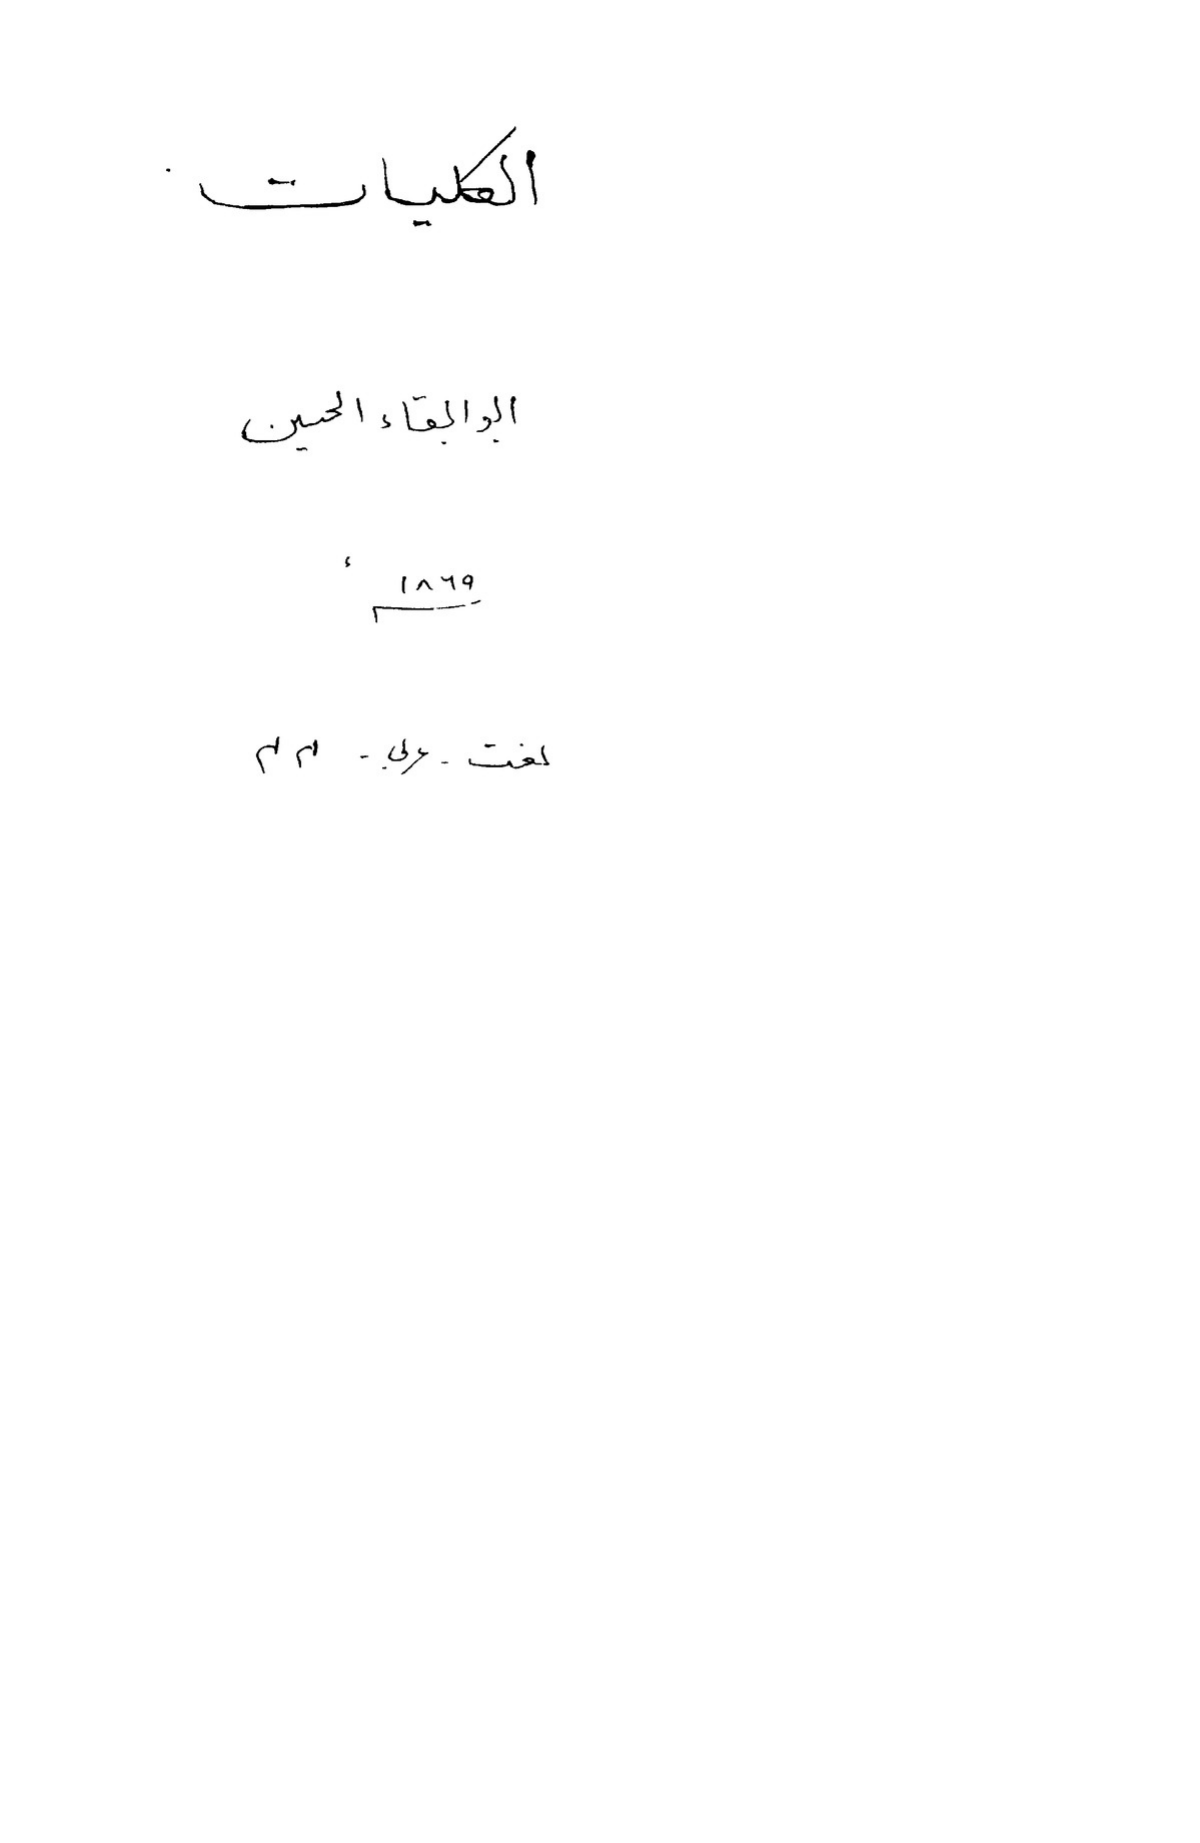 الكليات
ابو البقاء الحسين
١٨٦٩ء
لغت - عربی -